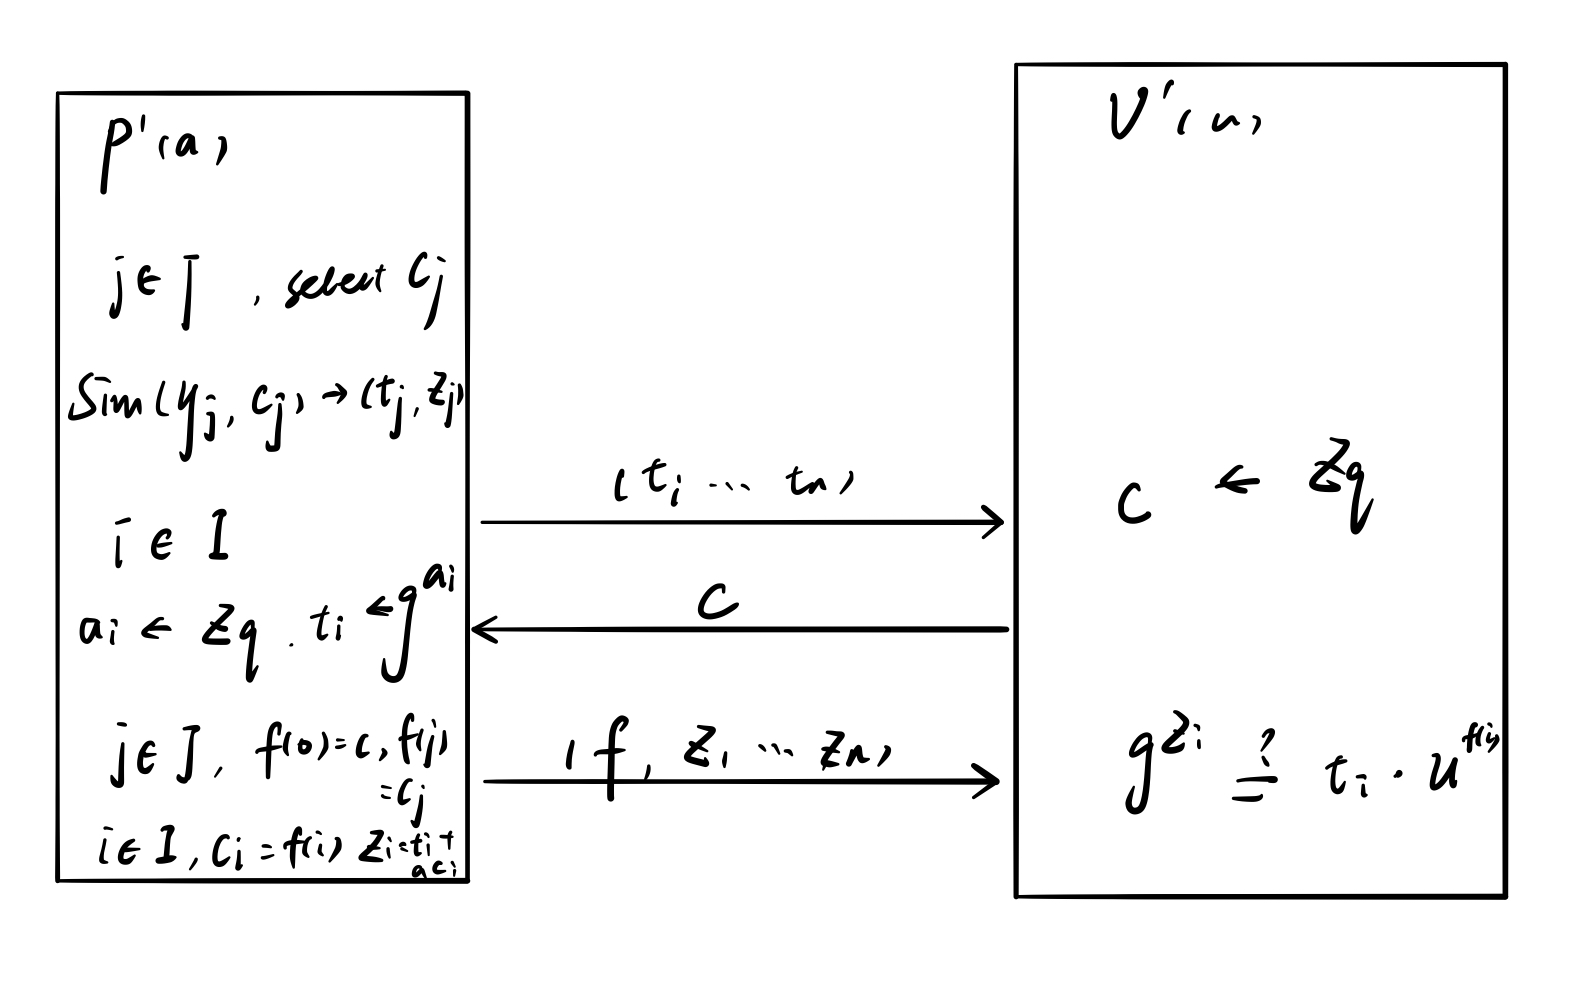 P'(a)
j ∈ J , select Cj
Sim(yj, cj) → (tj, zj)
i ∈ I
ai ← Zq . ti ← g^ai
j ∈ J, f(0)=c, f(j)
=cj
i ∈ I, Ci = f(i) Zi=ti+
aci
(ti ... tn)
C
(f, Z1 ... Zn)
V'(u)
C ← Zq
g^Zi ?= ti · u^f(i)